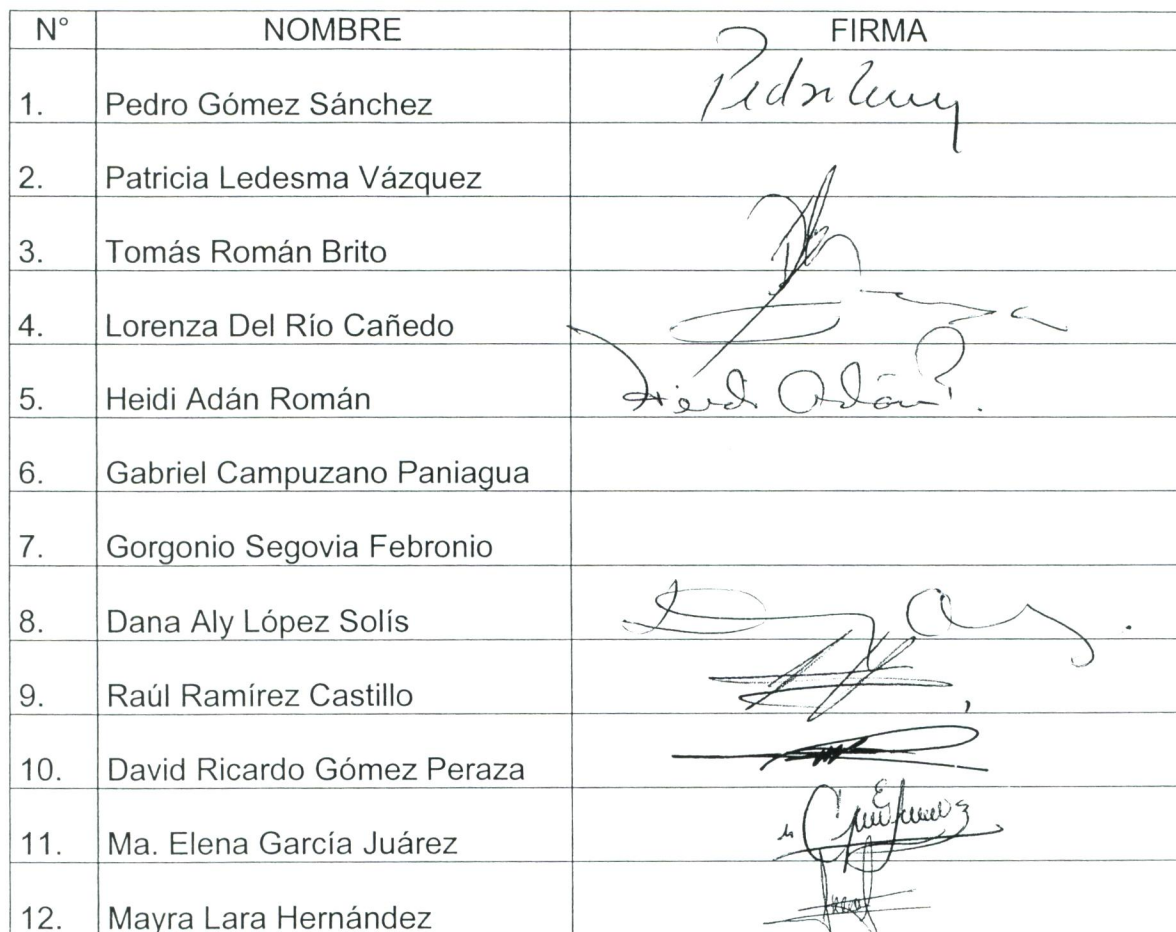 N° NOMBRE FIRMA
1. Pedro Gómez Sánchez
2. Patricia Ledesma Vázquez
3. Tomás Román Brito
4. Lorenza Del Río Cañedo
5. Heidi Adán Román Heidi Adán
6. Gabriel Campuzano Paniagua
7. Gorgonio Segovia Febronio
8. Dana Aly López Solís
9. Raúl Ramírez Castillo
10. David Ricardo Gómez Peraza
11. Ma. Elena García Juárez
12. Mayra Lara Hernández